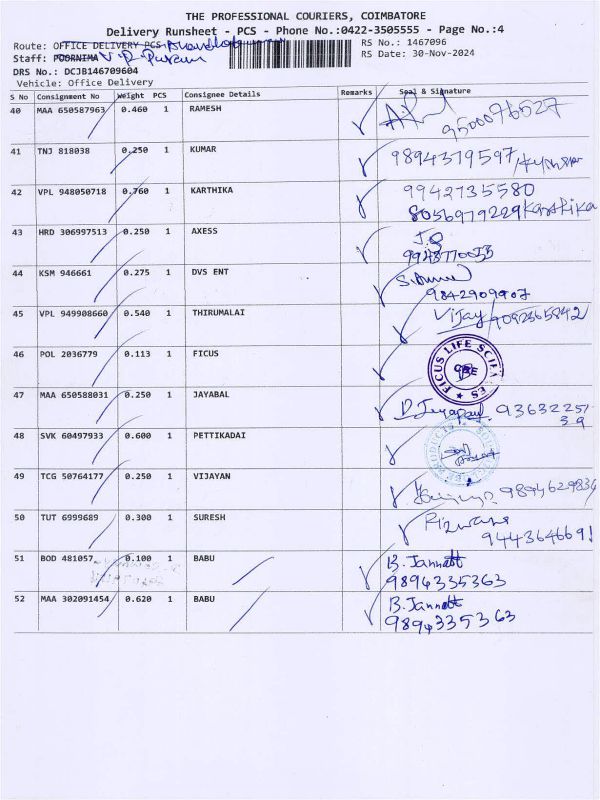 THE PROFESSIONAL COURIERS, COIMBATORE
Delivery Runsheet - PCS - Phone No.:0422-3505555 - Page No.:4
Route: OFFICE DELIVERY PCS RS No.: 1467096
Staff: POORNIMA V. R. Puram RS Date: 30-Nov-2024
DRS No.: DCJB146709604
Vehicle: Office Delivery
S No Consignment No Weight PCS Consignee Details Remarks Seal & Signature
40 MAA 650587963 0.460 1 RAMESH 9500076527
41 TNJ 818038 0.250 1 KUMAR 9894379597
42 VPL 948050718 0.760 1 KARTHIKA 9942735580
8056979229 Karthika
43 HRD 306997513 0.250 1 AXESS
44 KSM 946661 0.275 1 DVS ENT
9842909907
45 VPL 949908660 0.540 1 THIRUMALAI Vijay 9092565842
46 POL 2036779 0.113 1 FICUS FICUS LIFE SCIENCES CBE
47 MAA 650588031 0.250 1 JAYABAL D. Jayapaul 93632257
39
48 SVK 60497933 0.600 1 PETTIKADAI
49 TCG 50764177 0.250 1 VIJAYAN 9894629836
50 TUT 6999689 0.300 1 SURESH Rizwana
9443646691
51 BOD 481057 0.100 1 BABU B. Jannath
9894335363
52 MAA 302091454 0.620 1 BABU B. Jannath
9894335363